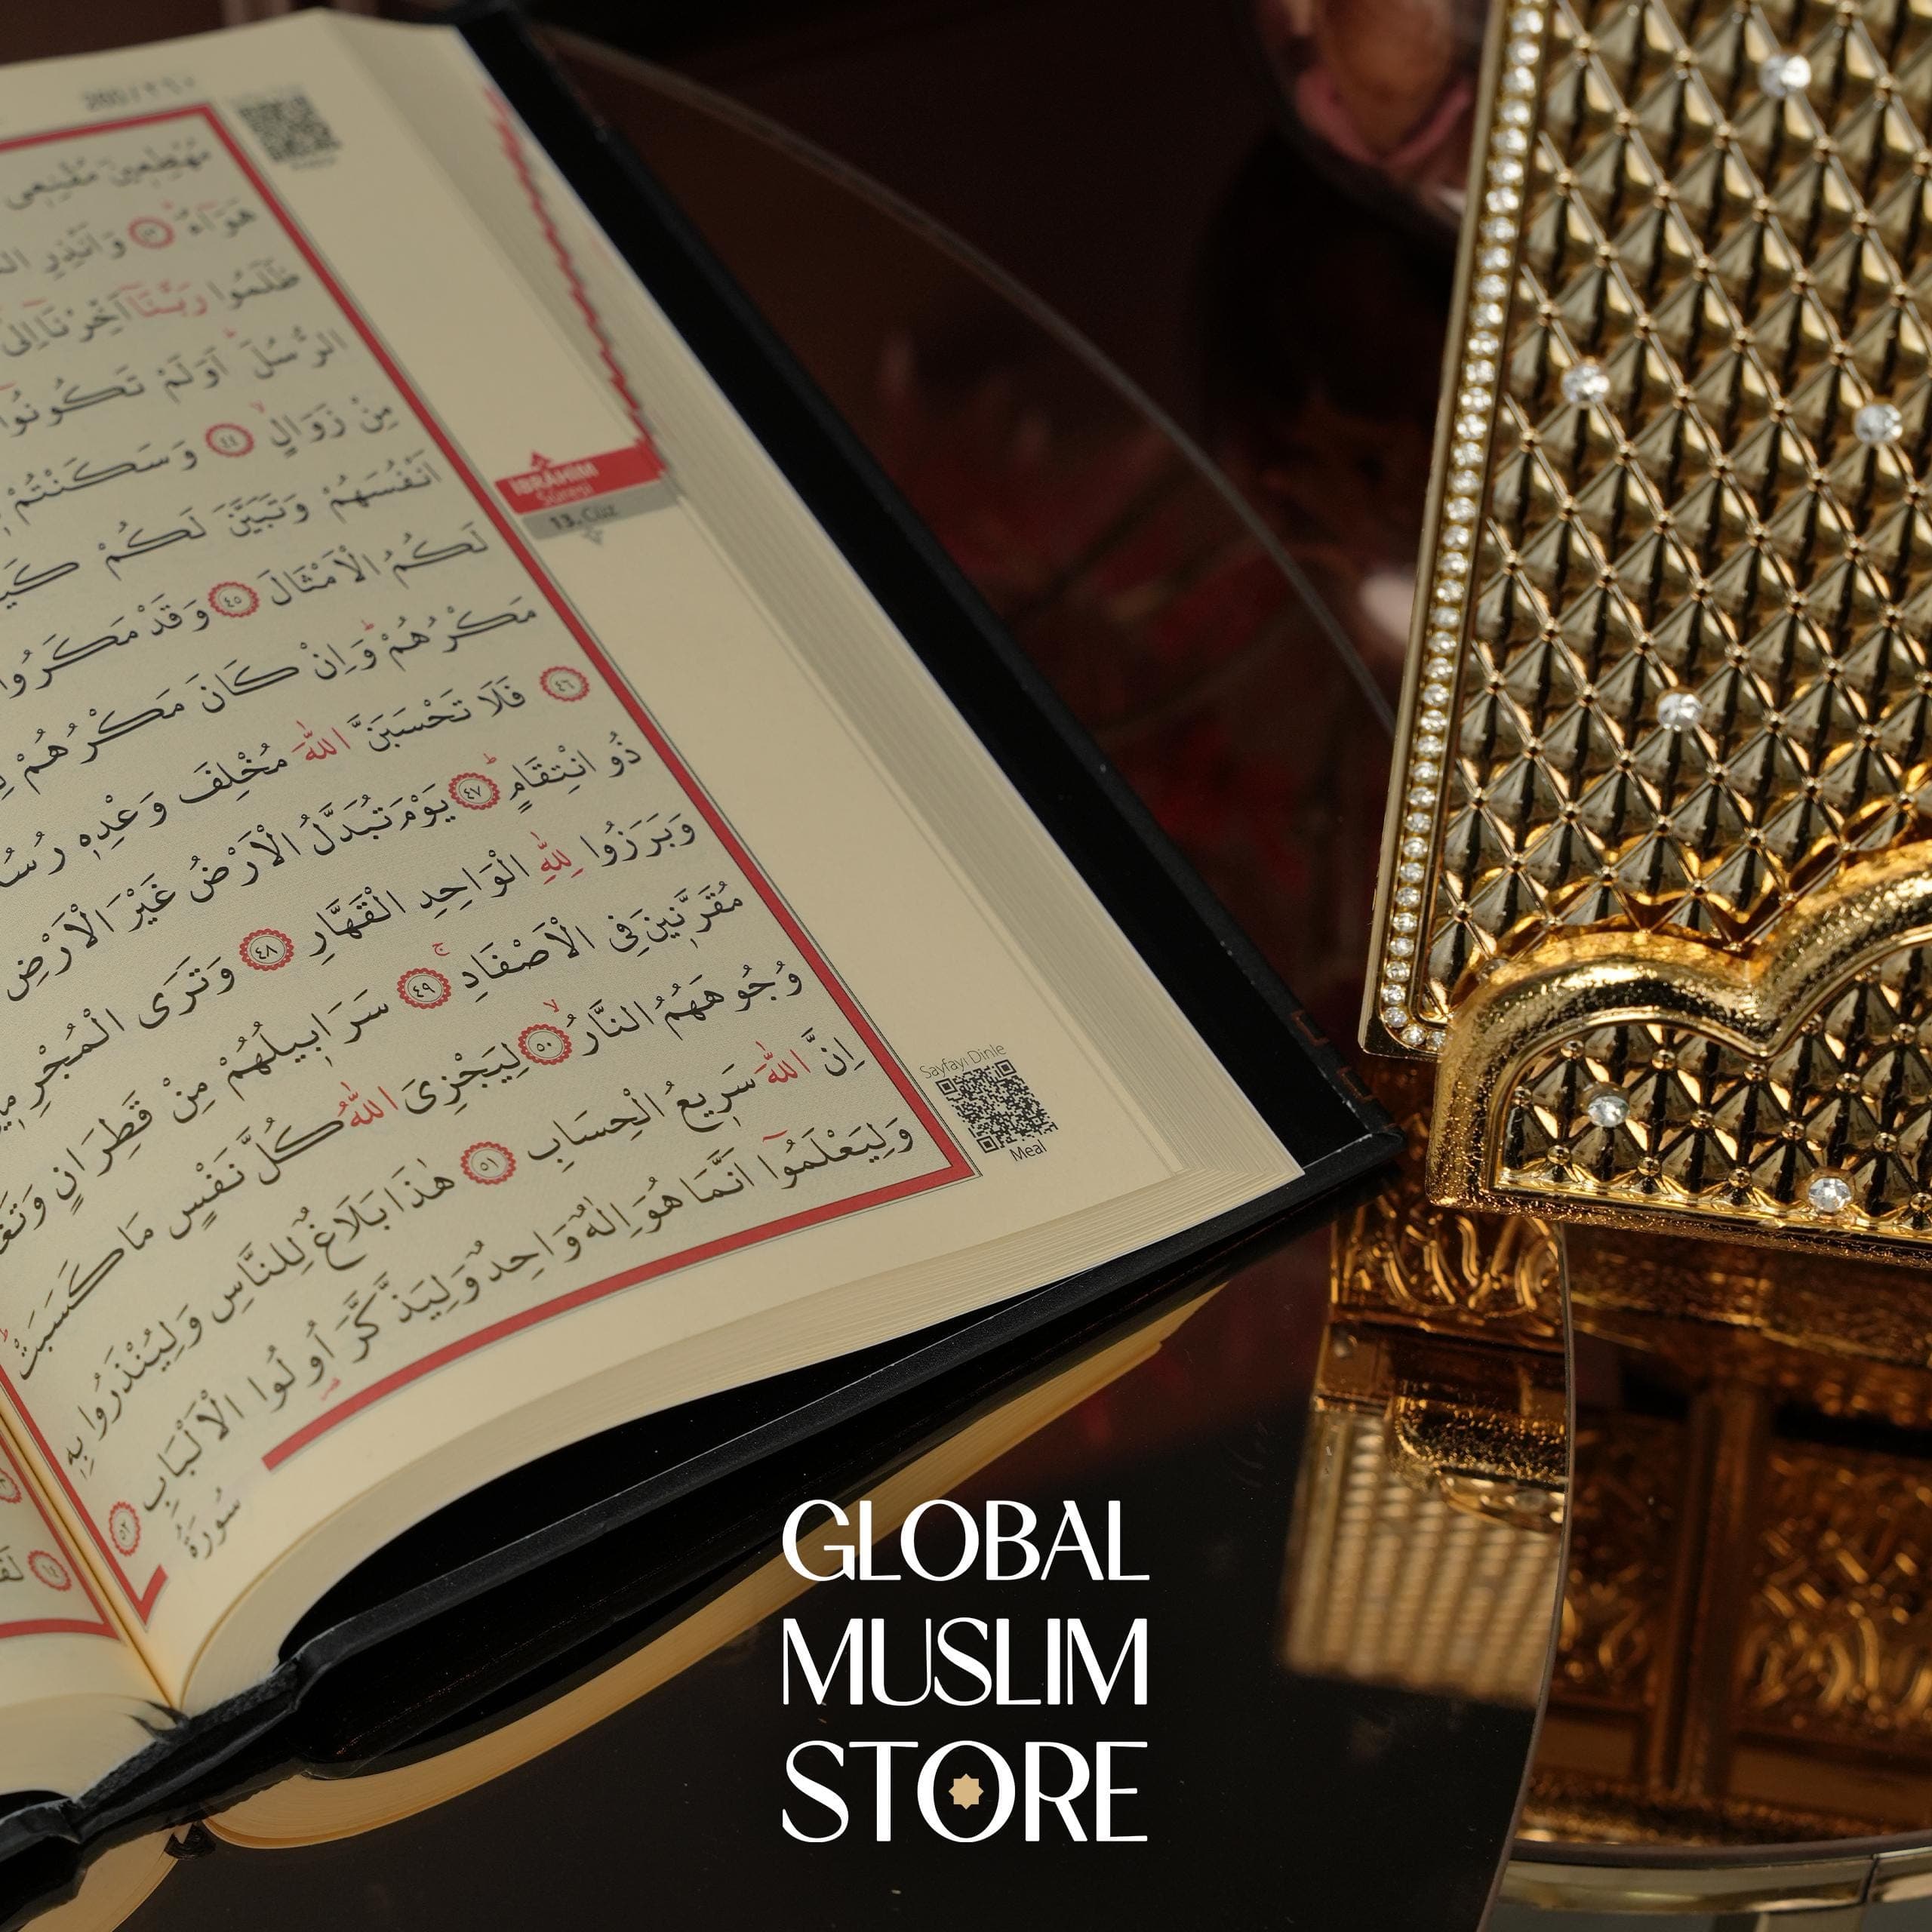 مُهْطِعِينَ مُقْنِعِى
هَوَٓاءٌ ٤٣ وَاَنْذِرِ
ظَلَمُوا رَبَّنَٓا اَخِّرْنَٓا اِلٰٓى
الرُّسُلَ اَوَلَمْ تَكُونُٓوا
مِنْ زَوَالٍ ٤٤ وَسَكَنْتُمْ
اَنْفُسَهُمْ وَتَبَيَّنَ لَكُمْ
لَكُمُ الْاَمْثَالَ ٤٥ وَقَدْ مَكَرُوا
مَكْرُهُمْ وَاِنْ كَانَ مَكْرُهُمْ
٤٦ فَلَا تَحْسَبَنَّ اللّٰهَ مُخْلِفَ وَعْدِهٖ
ذُو انْتِقَامٍ ٤٧ يَوْمَ تُبَدَّلُ الْاَرْضُ غَيْرَ الْاَرْضِ
وَبَرَزُوا لِلّٰهِ الْوَاحِدِ الْقَهَّارِ ٤٨ وَتَرَى الْمُجْرِمٖينَ
مُقَرَّنٖينَ فِى الْاَصْفَادِ ٤٩ سَرَابٖيلُهُمْ مِنْ قَطِرَانٍ
وُجُوهَهُمُ النَّارُ ٥٠ لِيَجْزِىَ اللّٰهُ كُلَّ نَفْسٍ مَا كَسَبَتْ
اِنَّ اللّٰهَ سَرٖيعُ الْحِسَابِ ٥١ هٰذَا بَلَاغٌ لِلنَّاسِ وَلِيُنْذَرُوا بِهٖ
وَلِيَعْلَمُٓوا اَنَّمَا هُوَ اِلٰهٌ وَاحِدٌ وَلِيَذَّكَّرَ اُولُوا الْاَلْبَابِ ٥٢
سُورَةُ
İBRÂHİM
Sûresi
13. Cüz
Sayfayı Dinle
Meal
GLOBAL
MUSLIM
STORE